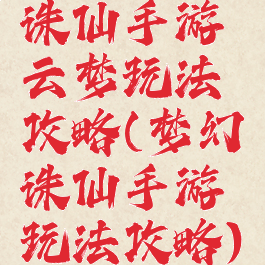 诛仙手游
云梦玩法
攻略(梦幻
诛仙手游
玩法攻略)